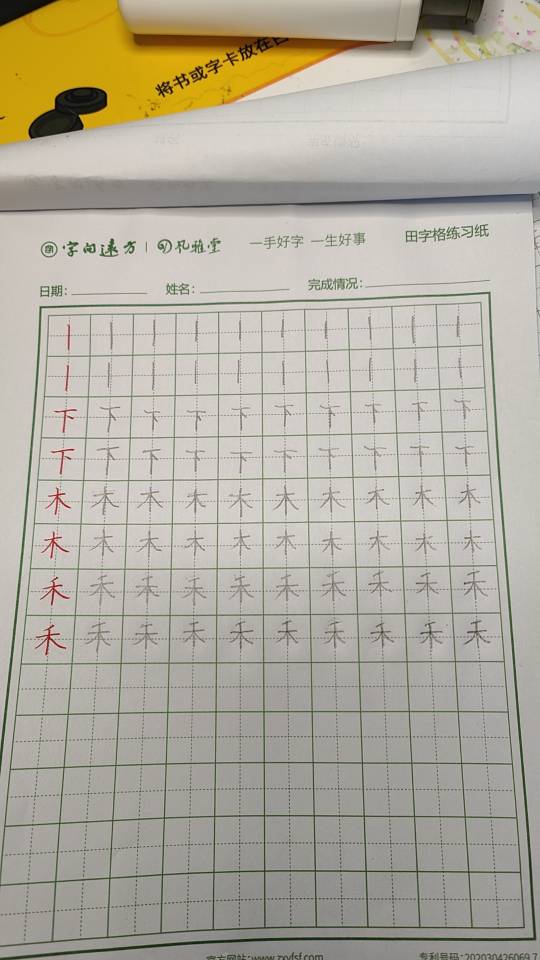 将书或字卡放在
字向远方 | 孔雅堂 一手好字 一生好事 田字格练习纸
日期: 姓名: 完成情况:
丨 丨 丨 丨 丨 丨 丨 丨 丨 丨
丨 丨 丨 丨 丨 丨 丨 丨 丨 丨
下 下 下 下 下 下 下 下 下 下
下 下 下 下 下 下 下 下 下 下
木 木 木 木 木 木 木 木 木 木
木 木 木 木 木 木 木 木 木 木
禾 禾 禾 禾 禾 禾 禾 禾 禾 禾
禾 禾 禾 禾 禾 禾 禾 禾 禾 禾
官方网站:www.zxyfsf.com 专利号码:202030426069.7